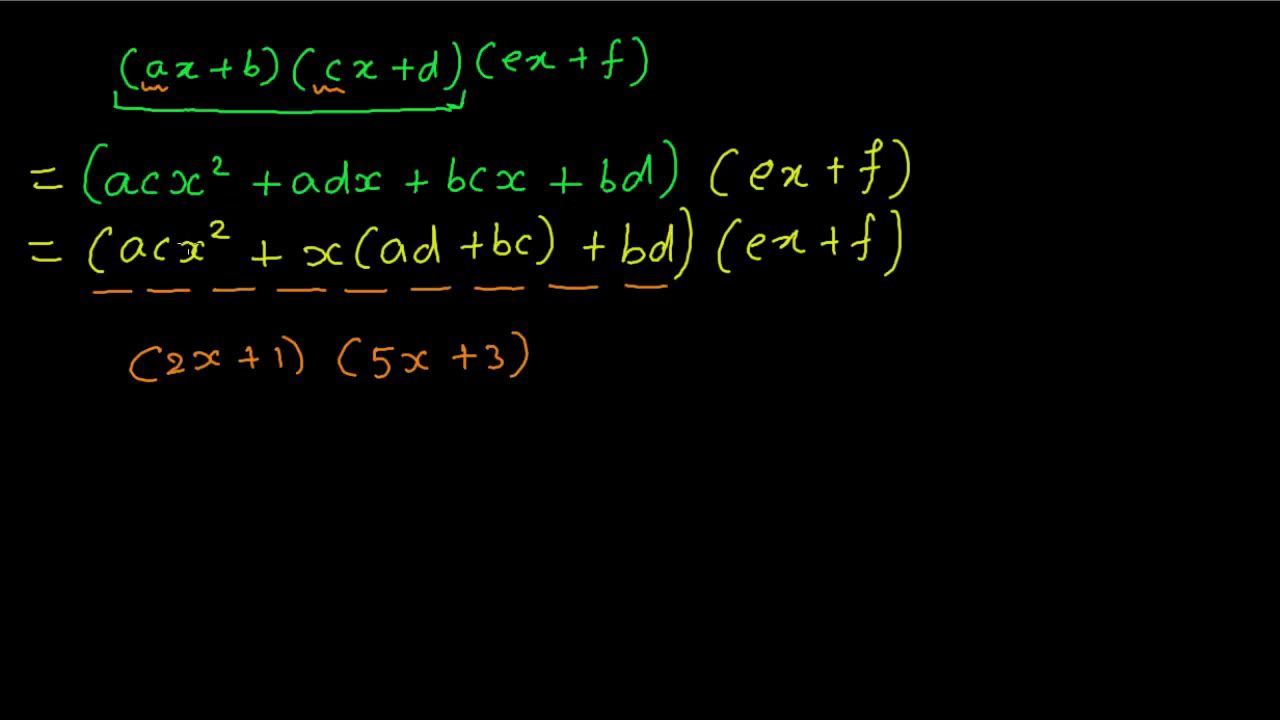 (ax+b)(cx+d)(ex+f)
= (acx² + adx + bcx + bd) (ex+f)
= (acx² + x(ad+bc) + bd) (ex+f)
(2x+1) (5x+3)